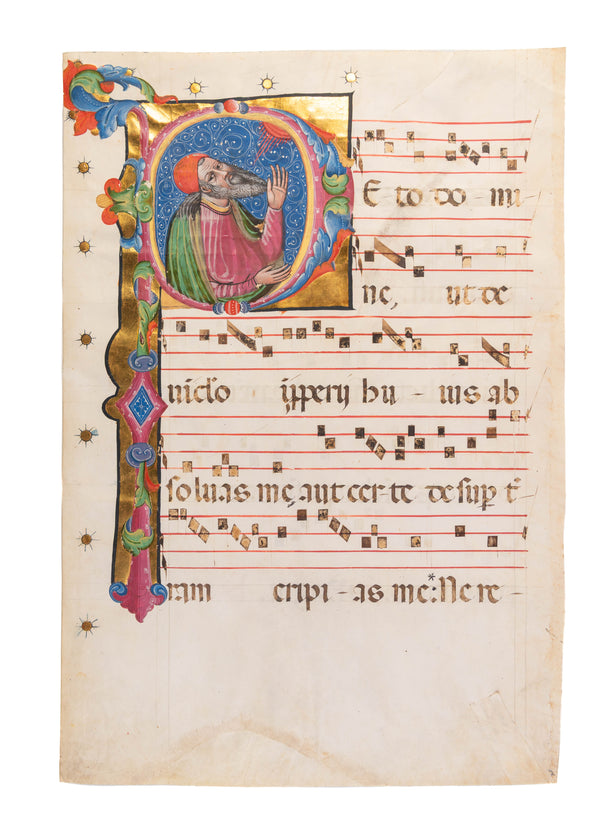 PE to do - mi -
ne, ut de
uiclo ipperij hu - ius ab
soluas me, aut cer-te de sup t̄
ram eripi - as me:* Ne re -